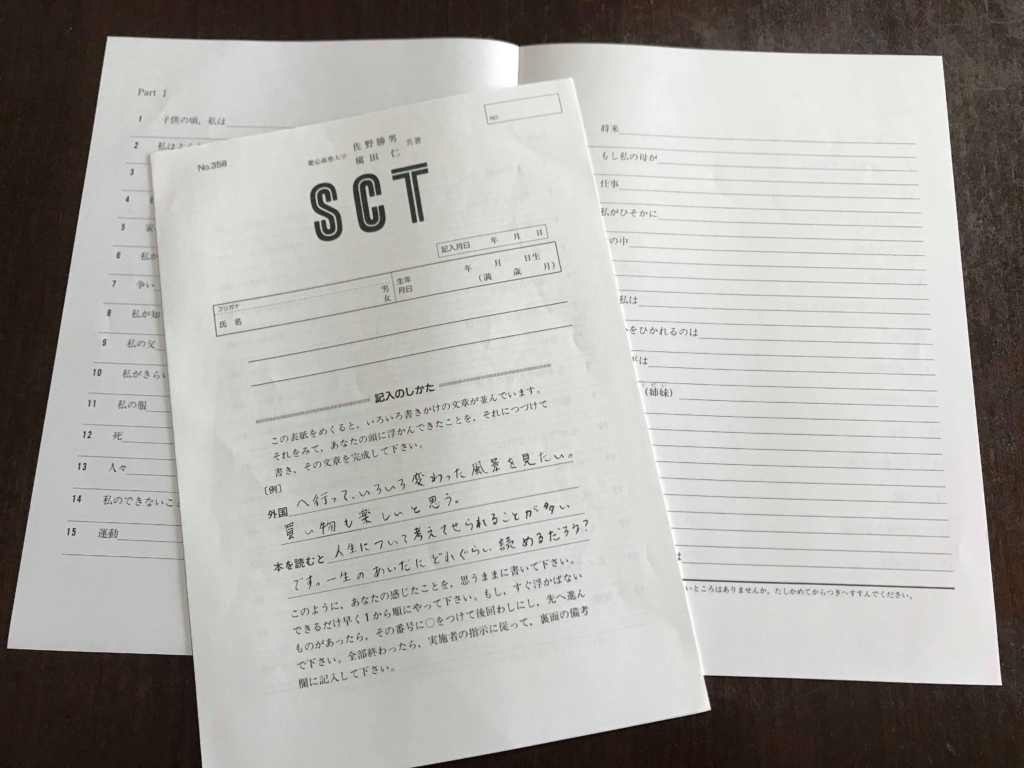 Part 1
1 子供の頃，私は
2 私はよく
3
4
5 家
6 私が
7 争い
8 私が知
9 私の父
10 私がきらい
11 私の服
12 死
13 人々
14 私のできないこ
15 運動
No.
No.358
慶応義塾大学 佐野勝男 横田仁 共著
SCT
記入月日 年 月 日
フリガナ
氏名
男
女
生年月日
年 月 日生
(満 歳 月)
記入のしかた
この表紙をめくると，いろいろ書きかけの文章が並んでいます。
それをみて，あなたの頭に浮かんできたことを，それにつづけて
書き，その文章を完成して下さい。
〔例〕
外国 へ行って、いろいろ変わった風景を見たい。
買い物も楽しいと思う。
本を読むと 人生について考えさせられることが多い
です。一生のあいだにどれぐらい読めるだろう？
このように，あなたの感じたことを，思うままに書いて下さい。
できるだけ早く1から順にやって下さい。もし，すぐ浮かばない
ものがあったら，その番号に○をつけて後回わしにし，先へ進ん
で下さい。全部終わったら，実施者の指示に従って，裏面の備考
欄に記入して下さい。
将来
もし私の母が
仕事
私がひそかに
の中
私は
をひかれるのは
は
(姉妹)
は
いところはありませんか。たしかめてからつぎへすすんでください。